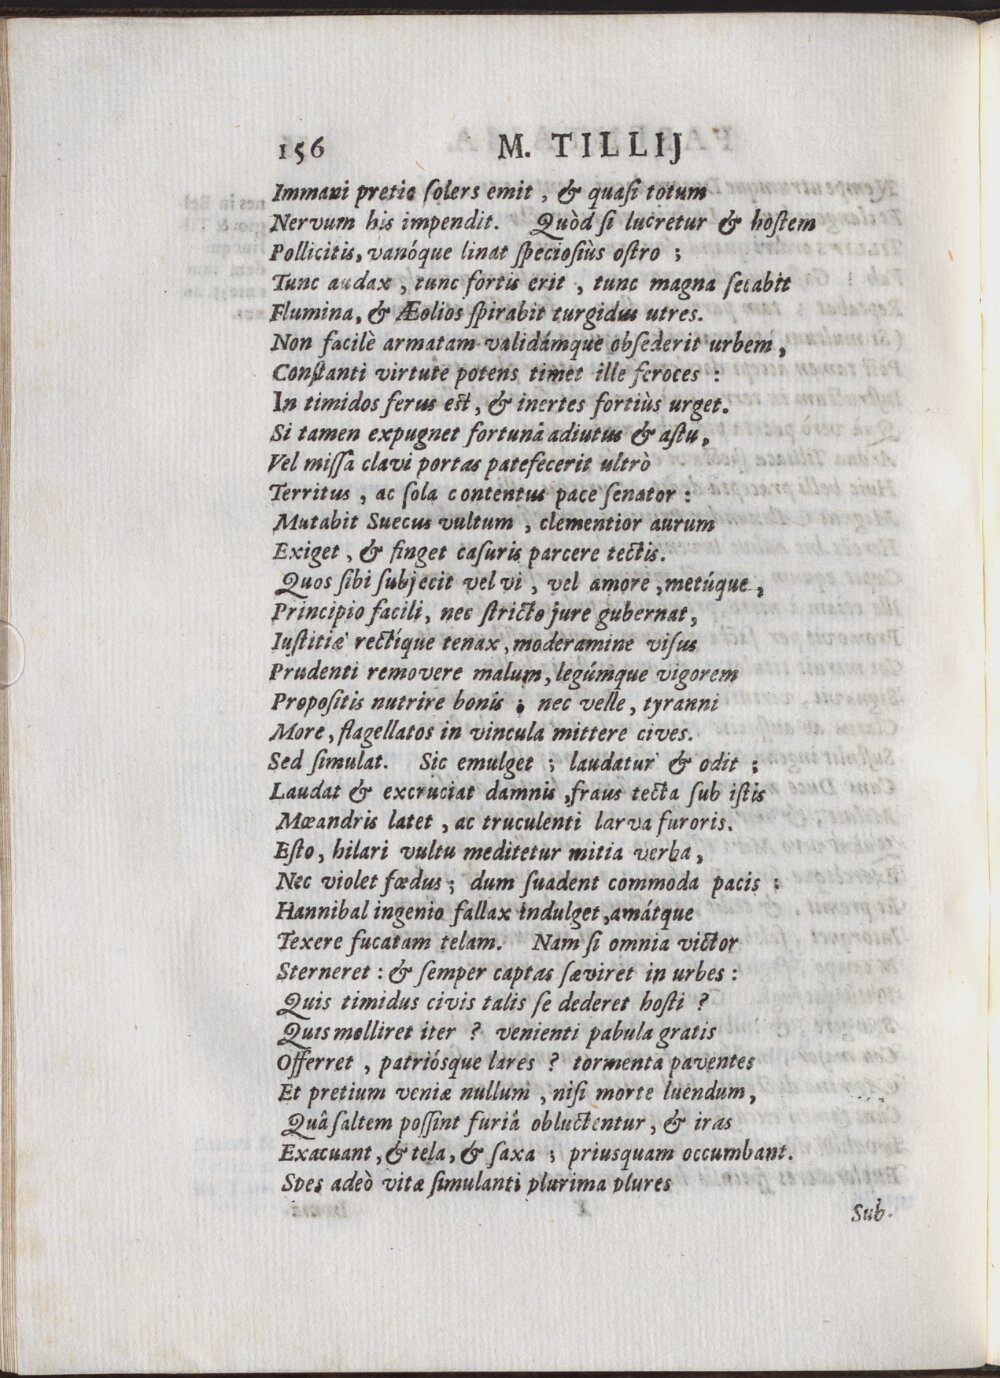 156 M. TILLIJ
Immani pretio ſolers emit, & quaſi totum
Nervum his impendit. Quòd ſi lucretur & hoſtem
Pollicitis, vanóque linat ſpecioſiùs oſtro ;
Tunc audax, tunc fortis erit, tunc magna ſecabit
Flumina, & Æolios ſpirabit turgidus utres.
Non facilè armatam validámque obſederit urbem,
Conſtanti virtute potens timet ille feroces :
In timidos ferus est, & inertes fortiùs urget.
Si tamen expugnet fortunâ adiutus & aſtu,
Vel miſſa clavi portas patefecerit ultrò
Territus, ac ſola contentus pace ſenator :
Mutabit Suecus vultum, clementior aurum
Exiget, & finget caſuris parcere tectis.
Quos ſibi ſubjecit vel vi, vel amore, metúque,
Principio facili, nec ſtricto jure gubernat,
Iuſtitiæ rectíque tenax, moderamine viſus
Prudenti removere malum, legúmque vigorem
Propoſitis nutrire bonis ; nec velle, tyranni
More, flagellatos in vincula mittere cives.
Sed ſimulat. Sic emulget ; laudatur & odit ;
Laudat & excruciat damnis, fraus tecta ſub iſtis
Mœandris latet, ac truculenti larva furoris.
Eſto, hilari vultu meditetur mitia verba,
Nec violet fœdus ; dum ſuadent commoda pacis :
Hannibal ingenio fallax indulget, amátque
Texere fucatam telam. Nam ſi omnia victor
Sterneret : & ſemper captas ſæviret in urbes :
Quis timidus civis talis ſe dederet hoſti ?
Quis molliret iter ? venienti pabula gratis
Offerret, patriósque lares ? tormenta paventes
Et pretium veniæ nullum, niſi morte luendum,
Quâ ſaltem poſſint furiâ obluctentur, & iras
Exacuant, & tela, & ſaxa ; priusquam occumbant.
Spes adeò vitæ ſimulanti plurima plures
Sub-